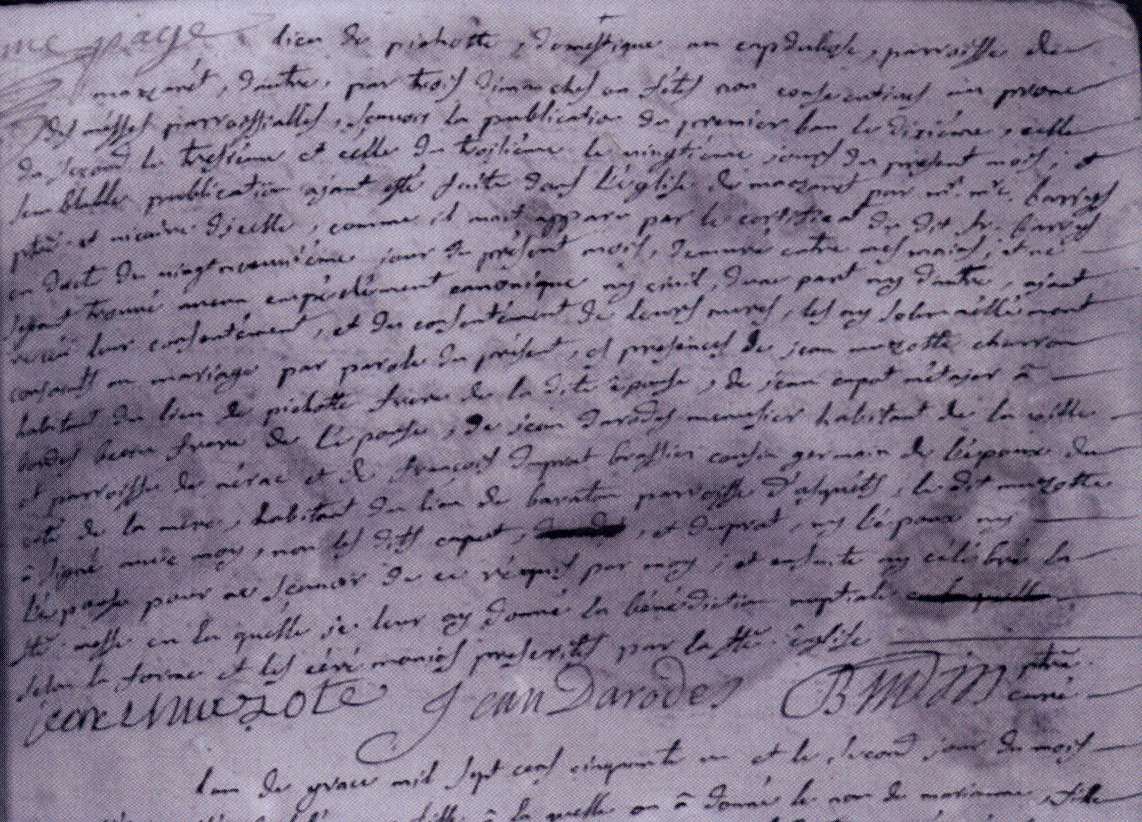 me page
lieu de pichotte, domestique au capdubosc, parroisse de
mazaret, d'autre, par trois dimanches ou fétes non consecutives au prone
des messes parroissialles, scavoir la publication du premier ban le dixiéme, celle
du second le tresiéme et celle du troisiéme le vingtiéme jours du present mois; et
semblable publication ajant esté faite dans l'église de mazaret par mr. mr. barrys
ptre. et vicaire d'icelle, comme il m'ait apparu par le certificat du dit sr. barrys
en dact du vingtneuviéme jour du présent mois, demuré entre mes mains; et ne
s'ejant trouvé aucun empéchément canonique ny civil, d'une part ny d'autre, ajant
recëu leur consentément, et du consentément de leurs meres, les ay solemnéllémant
conjoints en mariage par parole du présent, és presénces de jean muzotte charron
habitant du lieu de pichotte frere de la dite épouse, de jean capot métajer à
bordes beau frere de l'épouse, de jean darodes menusier habitant de la ville
et parroisse de nérac et de françois duprat brassier cousin germain de l'épouse du
coté de la mére, habitant du lieu de baraton parroisse d'asquéts, le dit muzotte
à signé avec moy, non les dits capot, et duprat, ny l'époux ny
l'épouse pour ne scavoir de ce réquis par moy; et ensuite ay célébré la
ste. messe en la quélle je leur ay donné la bénédiction nuptiale
selon la forme et les cérémonies prescrites par la ste. église
jean muzote Jean Darodes ptre.
curé
l'an de grace mil sept cens cinquante un et le second jour du mois
à la quelle on à donné le nom de marianne, fille